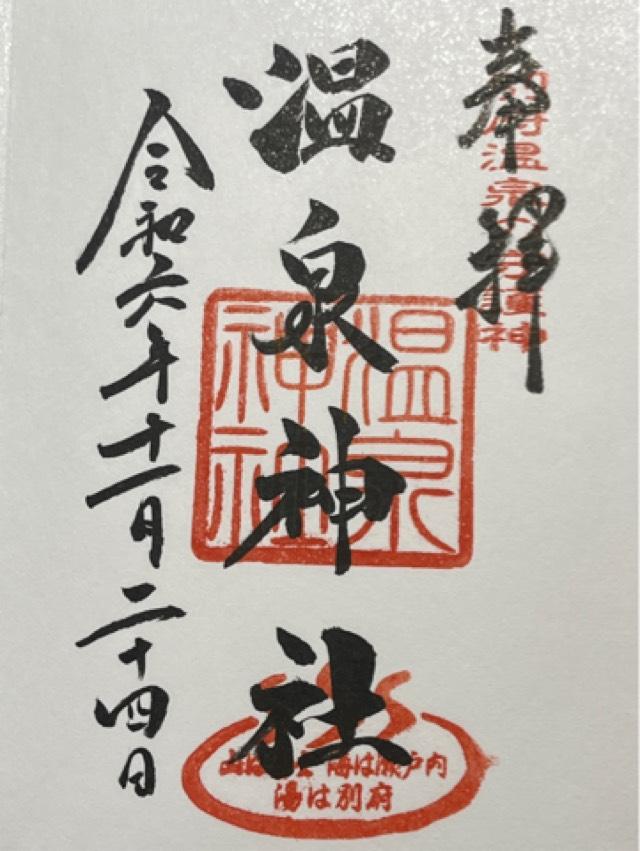 奉拝
別府温泉の守護神
温泉神社
温泉神社
令和六年十一月二十四日
海は瀬戸内
湯は別府